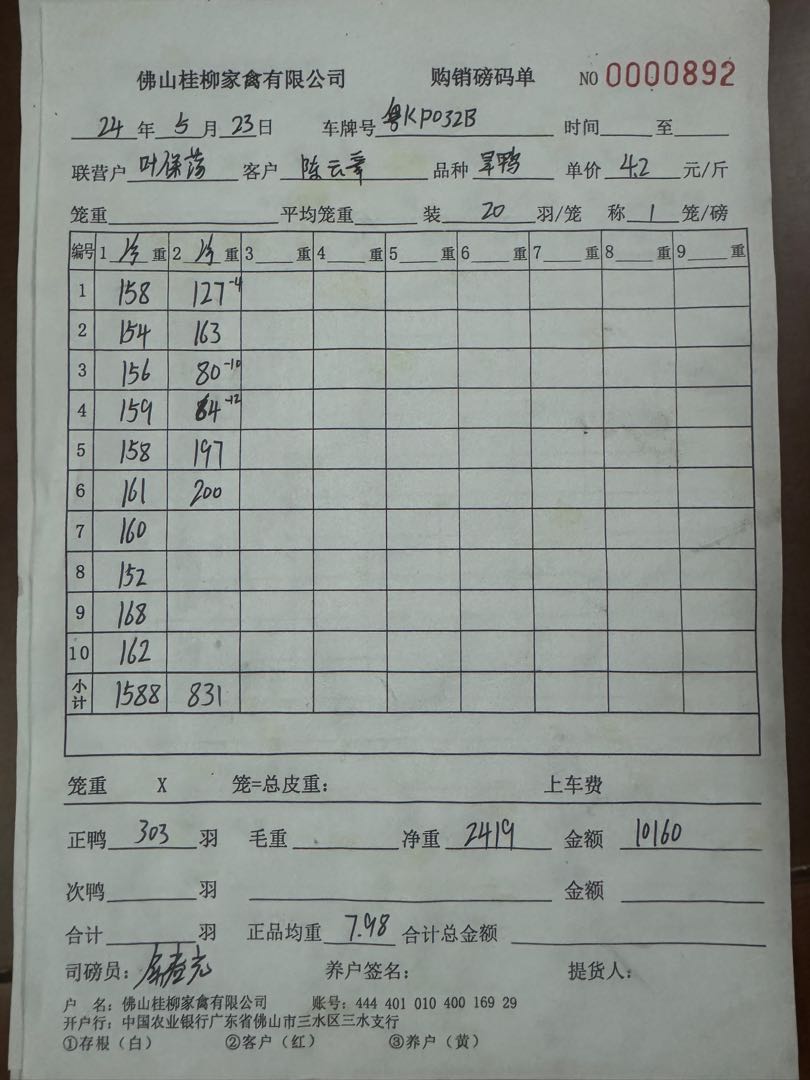 佛山桂柳家禽有限公司 购销磅码单 NO 0000892
24 年 5 月 23 日 车牌号 粤KP032B 时间 至
联营户 叶保荡 客户 陈云章 品种 旱鸭 单价 4.2 元/斤
笼重 平均笼重 装 20 羽/笼 称 1 笼/磅
编号 1 净 重 2 净 重 3 重 4 重 5 重 6 重 7 重 8 重 9 重
1 158 127 -4
2 154 163
3 156 80 -10
4 159 84 -12
5 158 197
6 161 200
7 160
8 152
9 168
10 162
小计 1588 831
笼重 X 笼=总皮重: 上车费
正鸭 303 羽 毛重 净重 2419 金额 10160
次鸭 羽 金额
合计 羽 正品均重 7.98 合计总金额
司磅员: 养户签名: 提货人:
户 名: 佛山桂柳家禽有限公司 账号: 444 401 010 400 169 29
开户行: 中国农业银行广东省佛山市三水区三水支行
①存根（白） ②客户（红） ③养户（黄）